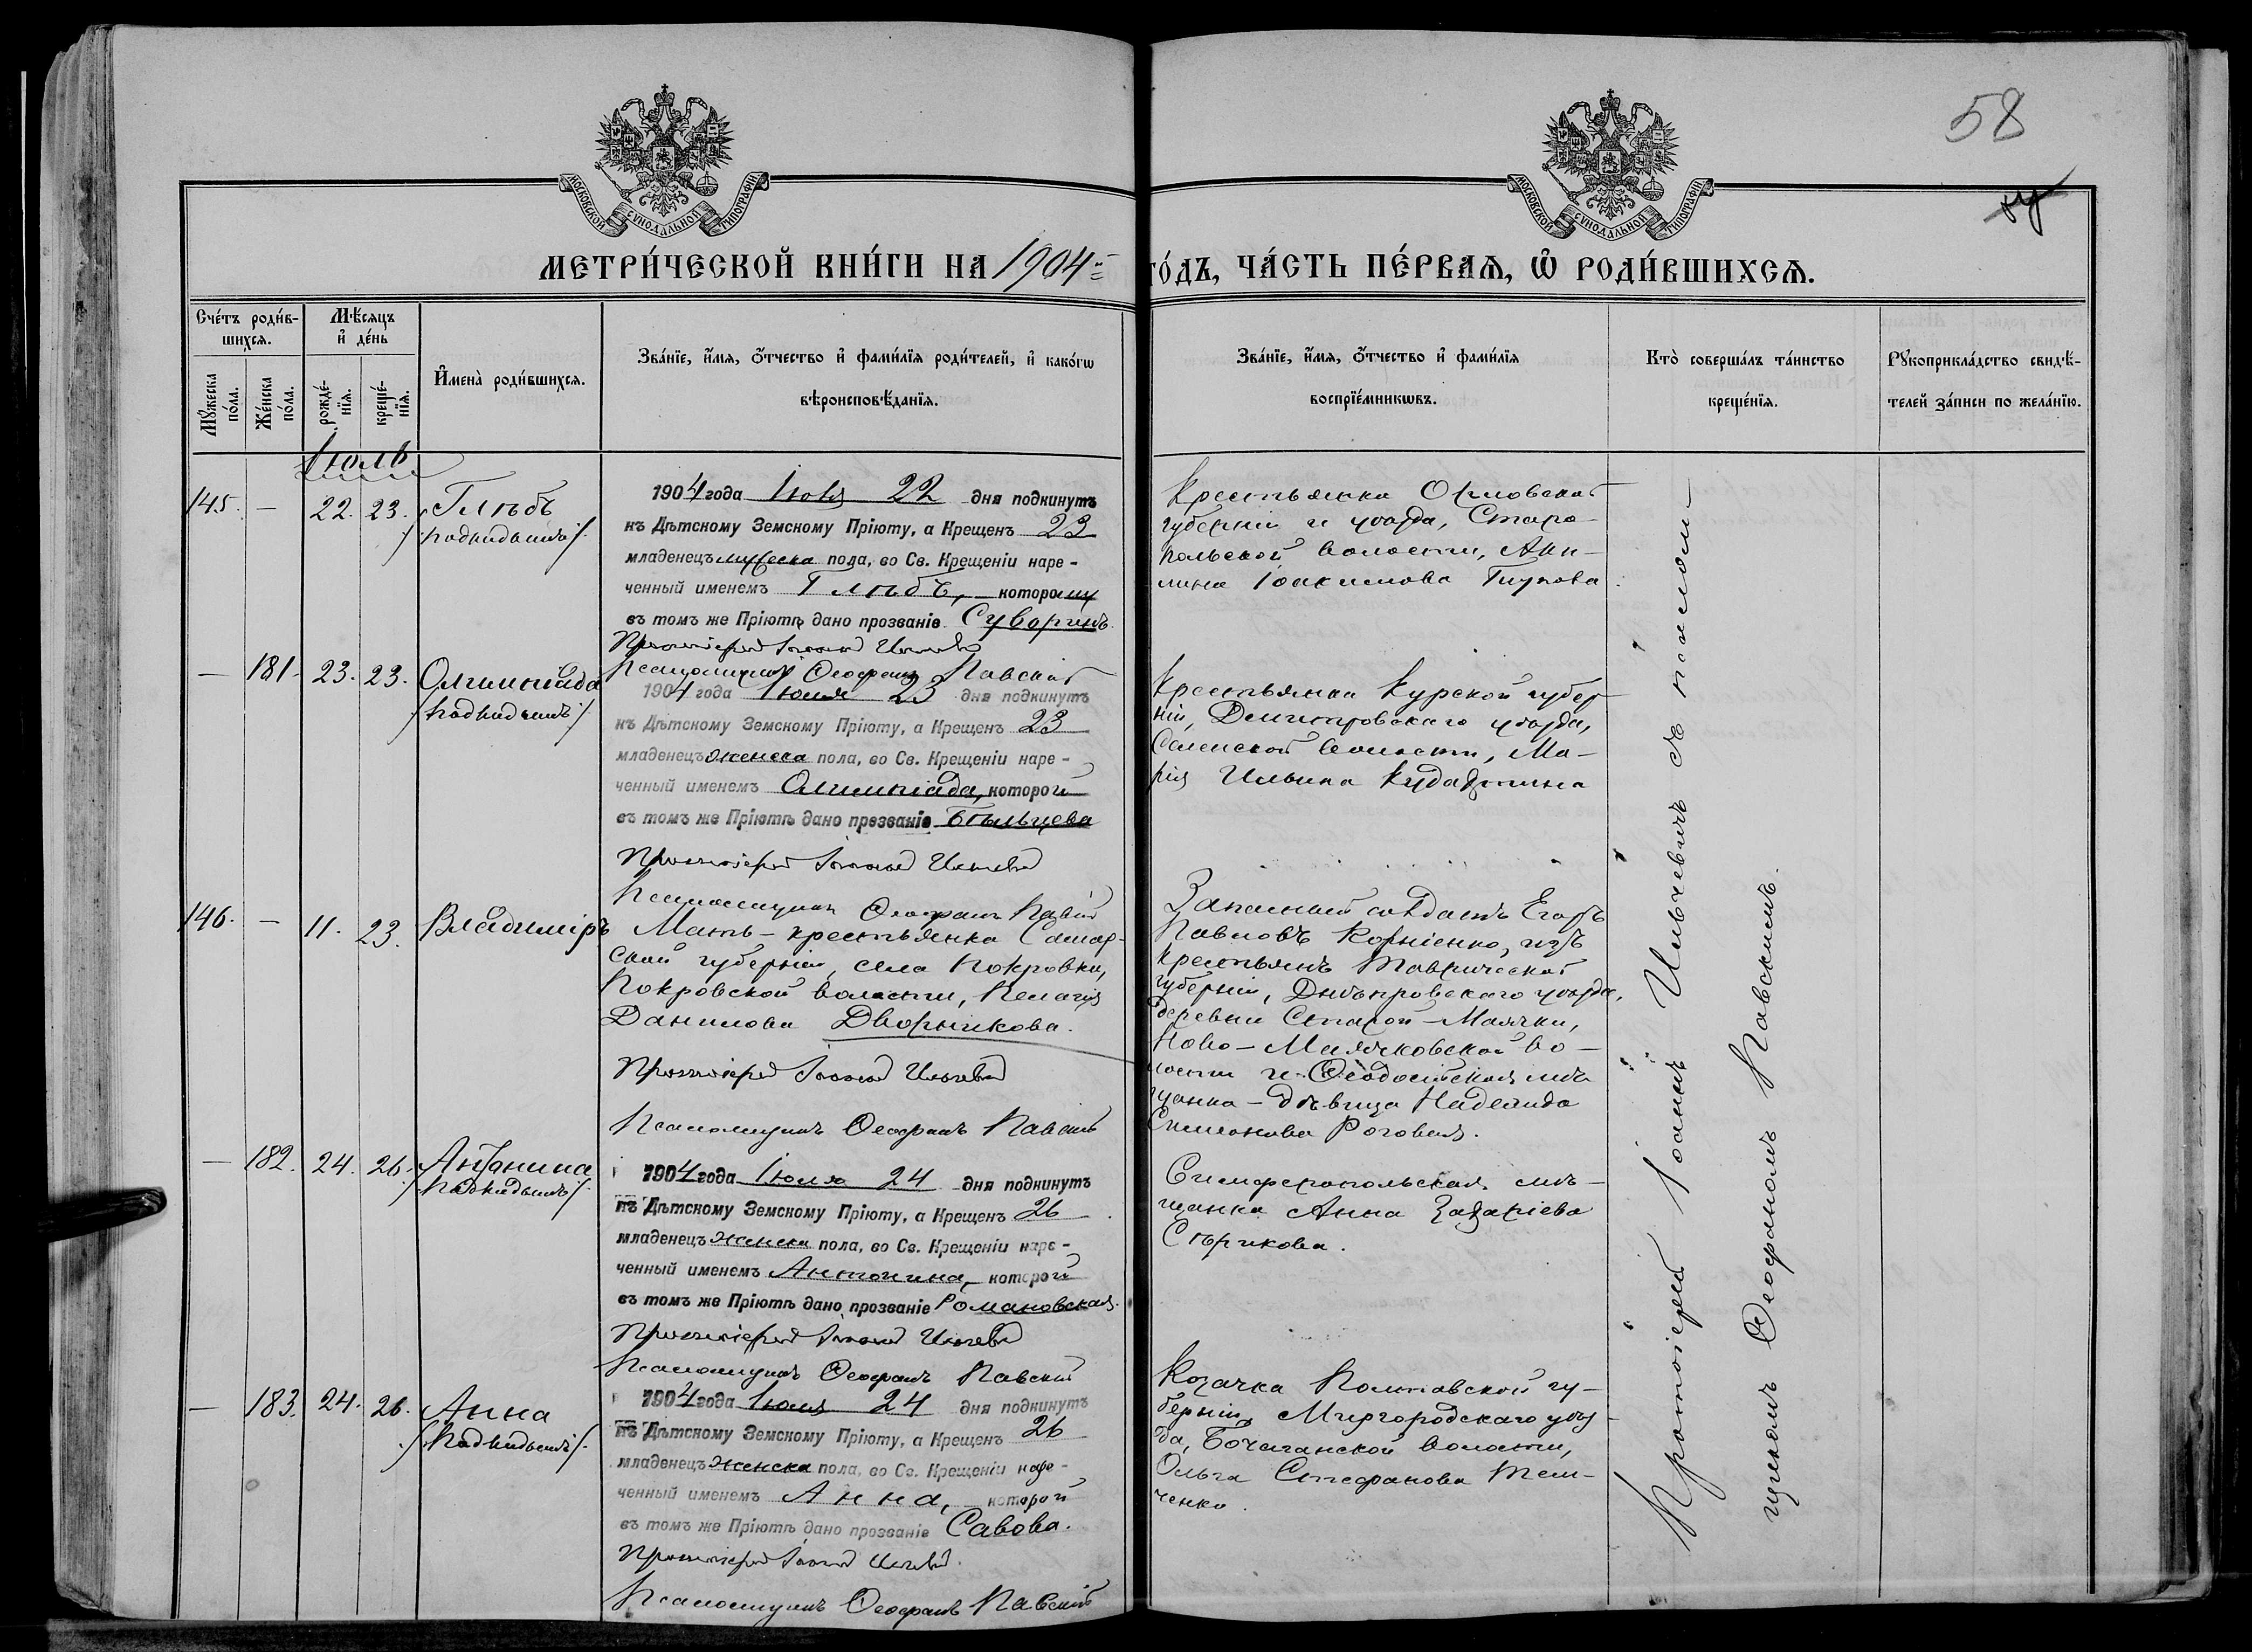 58
МОСКОВСКОЙ СѴНОДАЛЬНОЙ ТИПОГРАФІИ
МОСКОВСКОЙ СѴНОДАЛЬНОЙ ТИПОГРАФІИ
МЕТРИ́ЧЕСКОЙ КНИ́ГИ НА 1904 ГО́ДЪ, ЧА́СТЬ ПЕ́РВАЯ, Ѿ РОДИ́ВШИХСЯ.
Сче́тъ роди́в-
шихся.
Мꙋ́жеска по́ла.
Же́нска по́ла.
Мѣ́сяцъ
и҆ де́нь
рожде́-
нїя.
креще́-
нїя.
И҆мена̀ роди́вшихся.
Зва́нїе, и҆́мя, ѻ҆́тчество и҆ фами́лїя роди́телей, и҆ како́гѡ
вѣроисповѣ́данїя.
Зва́нїе, и҆́мя, ѻ҆́тчество и҆ фами́лїя
воспрїе́мникѡвъ.
Кто̀ соверша́лъ та́инство
креще́нїя.
Рꙋкоприкла́дство свидѣ́-
телей за́писи по жела́нїю.
Іюль
145. — 22. 23. Глѣбъ
/подкидышъ/.
1904 года Іюля 22 дня подкинутъ
къ Дѣтскому Земскому Пріюту, а Крещенъ 23
младенецъ мужеска пола, во Св. Крещеніи наре-
ченный именемъ Глѣбъ, которому
въ томъ же Пріютѣ дано прозваніе Суворинъ.
Протоіерей Іоаннъ Ильчевичъ
Псаломщикъ Ѳеофанъ Павскій
Крестьянка Орловской
губерніи и уѣзда, Старо-
польской волости, Аки-
лина Іоакимова Глухова.
— 181. 23. 23. Олимпіада
/подкидышъ/.
1904 года Іюля 23 дня подкинутъ
къ Дѣтскому Земскому Пріюту, а Крещенъ 23
младенецъ женска пола, во Св. Крещеніи наре-
ченный именемъ Олимпіада, которой
въ томъ же Пріютѣ дано прозваніе Бѣльцева
Протоіерей Іоаннъ Ильчевичъ
Псаломщикъ Ѳеофанъ Павскій
Крестьянка Курской губер-
ніи, Дмитровскаго уѣзда,
волости, Ма-
рія Ильина
146. — 11. 23. Владиміръ
Мать – крестьянка Самар-
ской губерніи, села Покровки,
Покровской волости, Пелагія
Данилова Дворникова.
Протоіерей Іоаннъ Ильчевичъ
Псаломщикъ Ѳеофанъ Павскій
Запасный солдатъ Егоръ
Павловъ Корніенко, изъ
крестьянъ Таврической
губерніи, Днѣпровскаго уѣзда,
деревни Старой-Маячки,
Ново-Маячковской во-
лости и Ѳеодосійская мѣ-
щанка – дѣвица Надежда
Симонова Роговая.
— 182. 24. 26. Антонина
/подкидышъ/.
1904 года Іюля 24 дня подкинутъ
къ Дѣтскому Земскому Пріюту, а Крещенъ 26
младенецъ женска пола, во Св. Крещеніи наре-
ченный именемъ Антонина, которой
въ томъ же Пріютѣ дано прозваніе Романовская.
Протоіерей Іоаннъ Ильчевичъ
Псаломщикъ Ѳеофанъ Павскій
Симферопольская мѣ-
щанка Анна Захаріева
Сѣрикова.
— 183. 24. 26. Анна
/подкидышъ/.
1904 года Іюля 24 дня подкинутъ
къ Дѣтскому Земскому Пріюту, а Крещенъ 26
младенецъ женска пола, во Св. Крещеніи наре-
ченный именемъ Анна, которой
въ томъ же Пріютѣ дано прозваніе Савова.
Протоіерей Іоаннъ Ильчевичъ
Псаломщикъ Ѳеофанъ Павскій
Козачка Полтавской гу-
берніи, Миргородскаго уѣз-
да, волости,
Ольга Стефанова Тем-
ченко.
Протоіерей Іоаннъ Ильчевичъ съ псалом-
щикомъ Ѳеофаномъ Павскимъ.